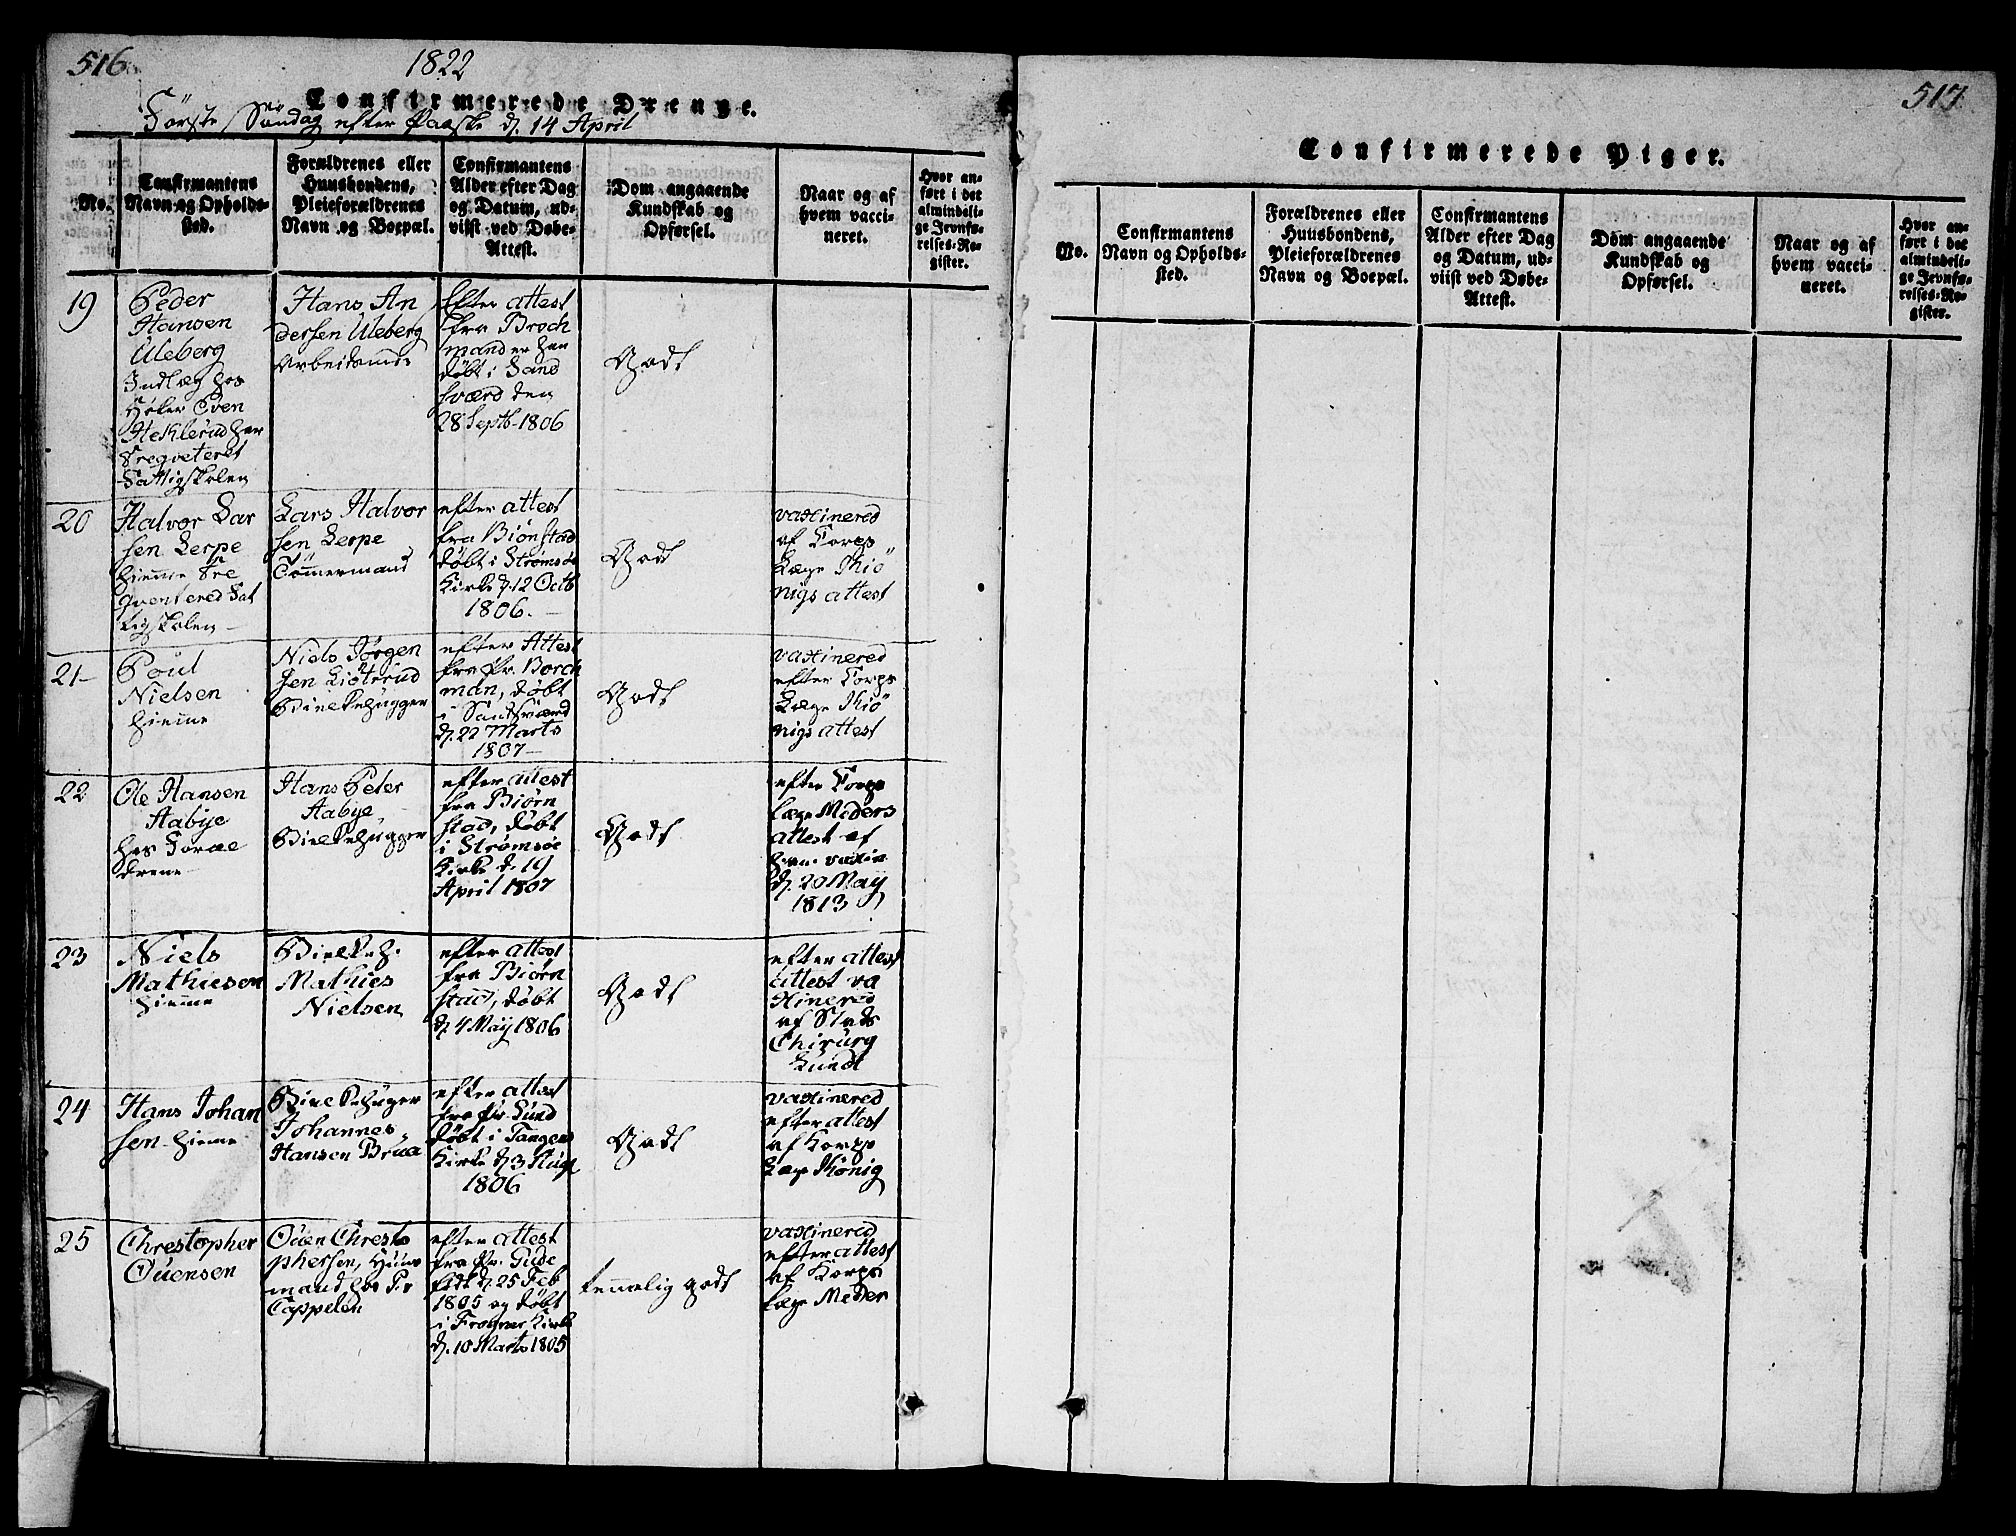 516
1822
Confirmerede Drenge.
Første Søndag efter Paaske d. 14 April
No.
Confirmantens
Navn og Opholds-
sted.
Forældrenes eller
Huusbondens,
Pleieforældrenes
Navn og Boepæl.
Confirmantens
Alder efter Dag
og Datum, ud-
viist ved Døbe-
Attest.
Dom angaaende
Kundskab og
Opførsel.
Naar og af
hvem vacci-
neret.
Hvor an-
ført i det
almindeli-
ge Jevnfø-
relses-Re-
gister.
19
Peder
Hansen
Uleberg
Indlæg hos
Høker Even
Heklerud har
Freqveteret
Fattigskolen
Hans An
dersen Uleberg
Arbeidsmd
Efter attest
fra Broch
mand er han
døbt i Sand
sværd den
28 Septb. 1806
Godt
20
Halvor Lar
sen Lerpe
hiemme Fre
qventered Fat
tigskolen
Lars Halvor
sen Lerpe
Tömmermand
efter attest
fra Biönstad
døbt i Strømsøe
Kirke d. 12 Octb
1806.
Godt
vaxinered
af Corps
Læge Kiö
nigs attest
21
Poul
Nielsen
hieme
Niels Jørgen
sen Liøterud
Bielkehugger
efter Attest
fra Pr. Borch
man, døbt
i Sandsværd
d. 22 Marts
1807
Godt
vaxinered
efter Corps
Læge Kiö
nigs attest
22
Ole Hansen
Aabye
hos Foræl
drene
Hans Peter
Aabye
Bielkehugger
efter attest
fra Biørn
stad, døbt
i Strømsøe
Kirke d. 19
April 1807
Godt
efter Corps
læge Meders
attest af
ham vaxin
d. 20 May
1813
23
Niels
Mathiesen
hieme
Bielkeh.
Mathies
Nielsen
efter attest
fra Biørn
stad, døbt
d. 4 May 1806
Godt
efter attest
attest va
xinered
af Stads
Chirurg
Lundt
24
Hans Johan
sen hieme
Bielkehuger
Johannes
Hansen Brua
efter attest
fra Pr. Lund
døbt i Tangens
Kirke d. 3 Aug
1806
Godt
vaxinered
efter attest
af Korps
Læge König
25
Christopher
Ouensen
Ouen Christo
phersen, Huus
mand hos Pr
Cappelen
efter attest
fra Pr. Gude
født d. 25 Feb
1805 og døbt
i Frogner Kirke
d. 10 Marts 1805
temmelig godt
vaxinered
efter attest
af Korps
læge Meder
517
Confirmerede Piger.
No.
Confirmantens
Navn og Opholds-
sted.
Forældrenes eller
Huusbondens,
Pleieforældrenes
Navn og Boepæl.
Confirmantens
Alder efter Dag
og Datum, ud-
viist ved Døbe-
Attest.
Dom angaaende
Kundskab og
Opførsel.
Naar og af
hvem vacci-
neret.
Hvor an-
ført i det
almindeli-
ge Jevnfø-
relses-Re-
gister.